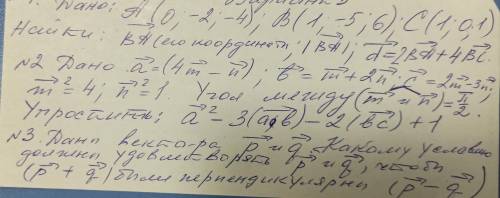 1. Дано: A(0, -2; -4); B(1; -5; 6); C(1; 0, 1)
Найти: BA⃗ (его координаты; |BA⃗|; d⃗ = 2BA⃗ + 4BC⃗.
№2 Дано a⃗ = (4m⃗ - n⃗); b⃗ = m⃗ + 2n⃗; c⃗ = 2m⃗ - 3n⃗;
m⃗² = 4; n⃗² = 1. Угол между (m⃗ и n⃗) = π/2.
Упростить: a⃗² - 3(a⃗b⃗) - 2(b⃗c⃗) + 1
№3. Дани вектора p⃗ и q⃗. Какому условию
должны удовлетворять p⃗ и q⃗, чтобы
(p⃗ + q⃗) были перпендикулярны (p⃗ - q⃗)